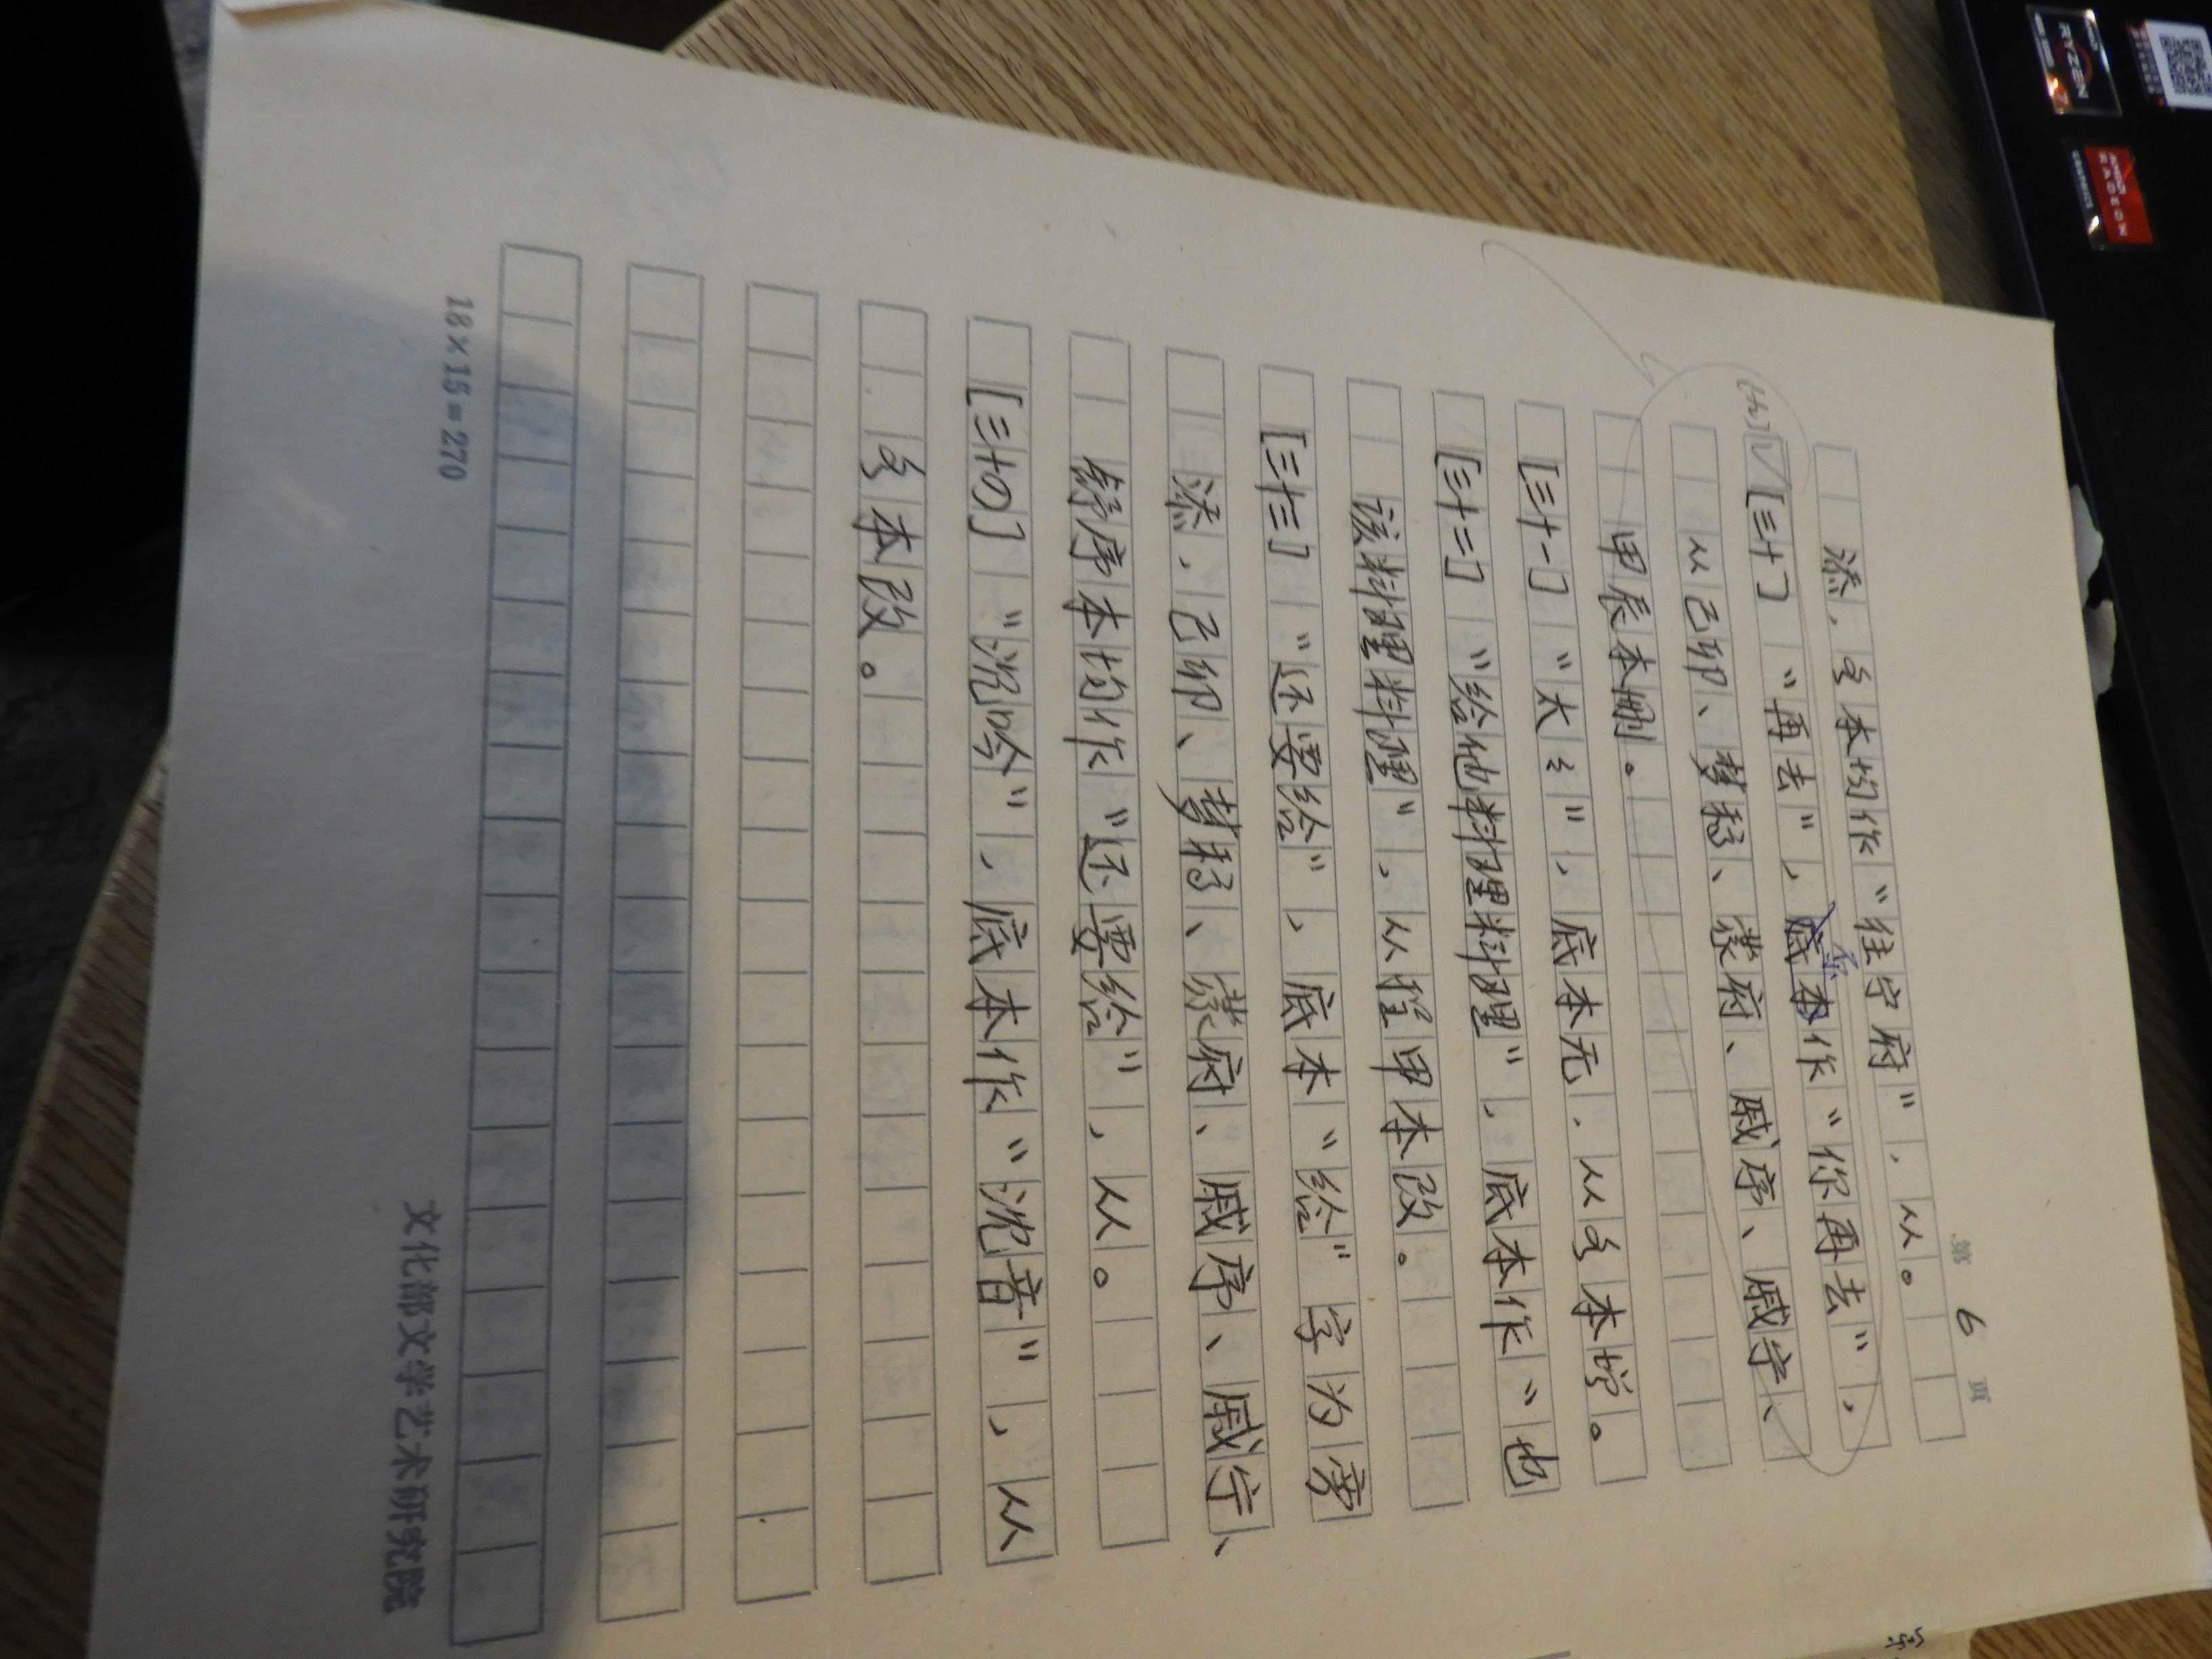 第 6 页
添,各本均作“往宁府”,从。
[三十] “再去”,底本作“你再去”,
从己卯、梦稿、蒙府、戚序、戚宁、
甲辰本删。
[三十一] “太〻”,底本无,从各本增。
[三十二] “给他料理料理”,底本作“也
该料理料理”,从程甲本改。
[三十三] “还要给”,底本“给”字为旁
添,己卯、梦稿、蒙府、戚序、戚宁、
舒序本均作“还要给”,从。
[三十四] “沉吟”,底本作“沈音”,从
各本改。
18×15=270
文化部文学艺术研究院
AMD
RYZEN
7
AMD
RADEON
GRAPHICS